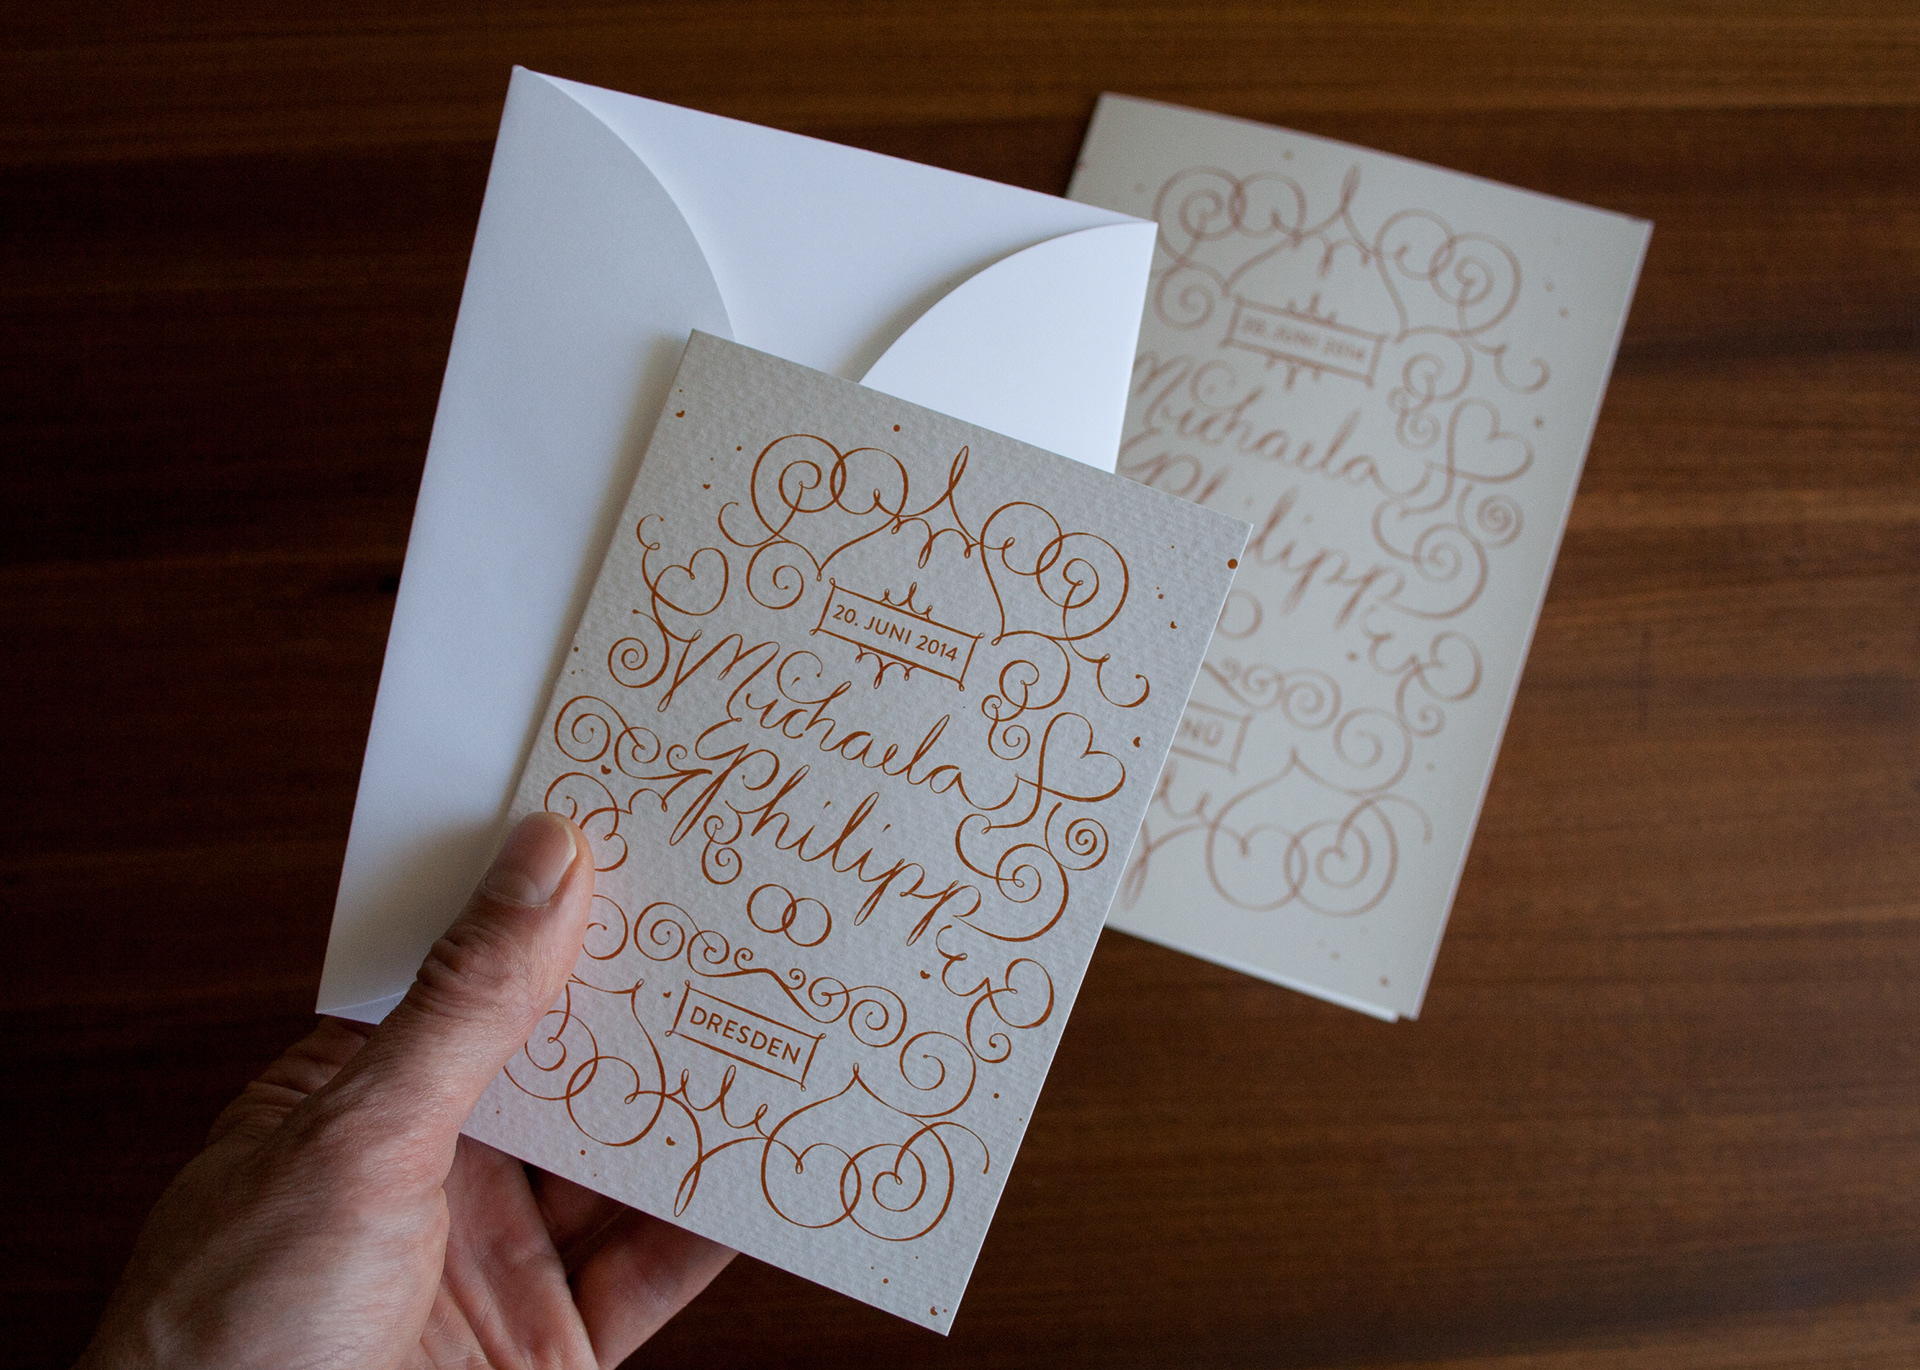 20. JUNI 2014
Michaela
Philipp
DRESDEN
20. JUNI 2014
Michaela
Philipp